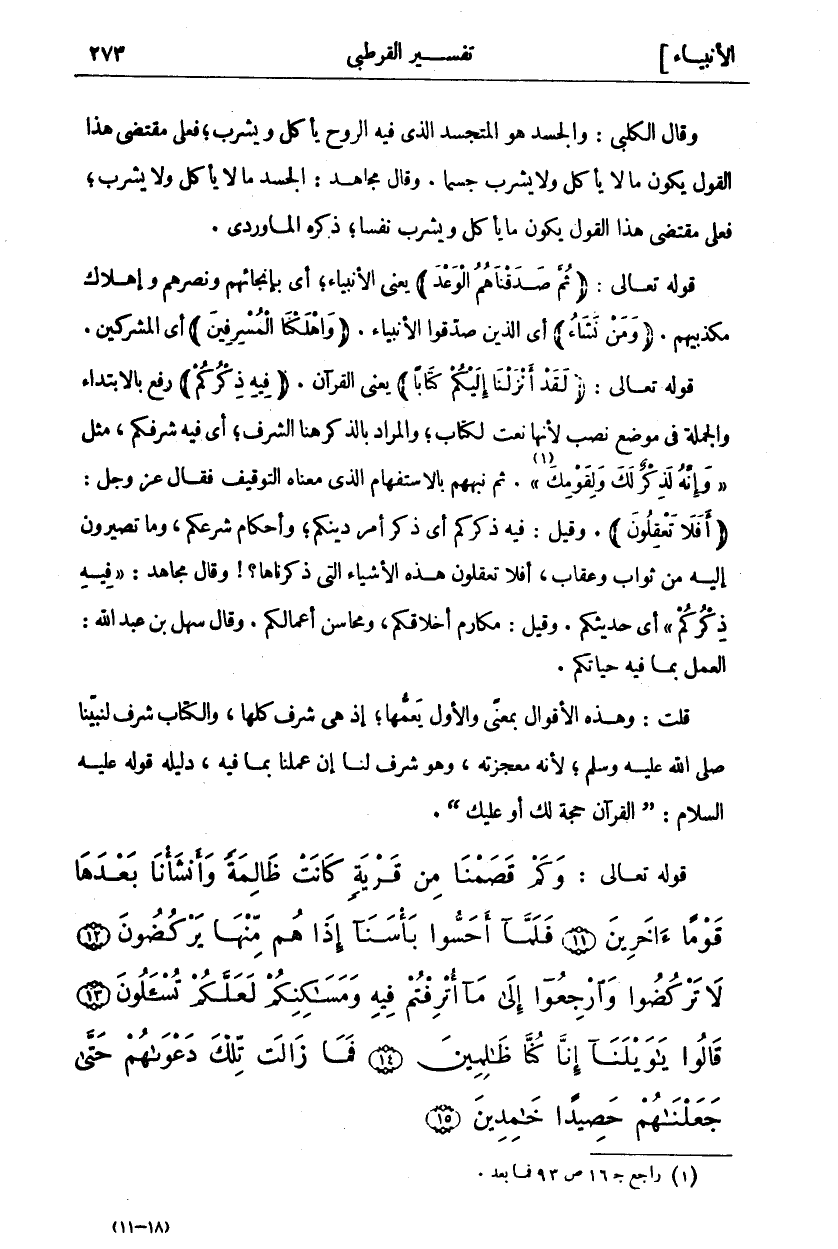 الأنبياء] تفسير القرطبي ٢٧٣
وقال الكلبي : والجسد هو المتجسد الذى فيه الروح يأكل ويشرب؛ فعلى مقتضى هذا
القول يكون ما لا يأكل ولا يشرب جسما . وقال مجاهد : الجسد ما لا يأكل ولا يشرب؛
فعلى مقتضى هذا القول يكون ما يأكل ويشرب نفسا؛ ذكره الماوردى .
قوله تعالى : ﴿ ثُمَّ صَدَقْنَاهُمُ الْوَعْدَ ﴾ يعنى الأنبياء؛ أى بإنجائهم ونصرهم و إهلاك
مكذبيهم . ﴿ وَمَنْ نَشَاءُ ﴾ أى الذين صدّقوا الأنبياء . ﴿ وَأَهْلَكْنَا الْمُسْرِفِينَ ﴾ أى المشركين .
قوله تعالى : ﴿ لَقَدْ أَنْزَلْنَا إِلَيْكُمْ كِتَابًا ﴾ يعنى القرآن . ﴿ فِيهِ ذِكْرُكُمْ ﴾ رفع بالابتداء
والجملة فى موضع نصب لأنها نعت لكتاب؛ والمراد بالذكر هنا الشرف؛ أى فيه شرفكم ، مثل
« وَإِنَّهُ لَذِكْرٌ لَكَ وَلِقَوْمِكَ (١) » . ثم نبههم بالاستفهام الذى معناه التوقيف فقال عز وجل :
﴿ أَفَلَا تَعْقِلُونَ ﴾ . وقيل : فيه ذكركم أى ذكر أمر دينكم؛ وأحكام شرعكم ، وما تصيرون
إليه من ثواب وعقاب ، أفلا تعقلون هذه الأشياء التى ذكرناها؟! وقال مجاهد : « فِيهِ
ذِكْرُكُمْ » أى حديثكم . وقيل : مكارم أخلاقكم، ومحاسن أعمالكم . وقال سهل بن عبد الله :
العمل بما فيه حياتكم .
قلت : وهذه الأقوال بمعنًى والأول يَعمُّها؛ إذ هى شرف كلها ، والكتاب شرف لنبيّنا
صلى الله عليه وسلم ؛ لأنه معجزته ، وهو شرف لنا إن عملنا بما فيه ، دليله قوله عليه
السلام : ” القرآن حجة لك أو عليك “ .
قوله تعالى : وَكَمْ قَصَمْنَا مِن قَرْيَةٍ كَانَتْ ظَالِمَةً وَأَنشَأْنَا بَعْدَهَا
قَوْمًا ءَاخَرِينَ ﴿١١﴾ فَلَمَّآ أَحَسُّوا بَأْسَنَآ إِذَا هُم مِّنْهَا يَرْكُضُونَ ﴿١٢﴾
لَا تَرْكُضُوا وَٱرْجِعُوٓا إِلَىٰ مَآ أُتْرِفْتُمْ فِيهِ وَمَسَـٰكِنِكُمْ لَعَلَّكُمْ تُسْـَٔلُونَ ﴿١٣﴾
قَالُوا يَـٰوَيْلَنَآ إِنَّا كُنَّا ظَـٰلِمِينَ ﴿١٤﴾ فَمَا زَالَت تِّلْكَ دَعْوَىٰهُمْ حَتَّىٰ
جَعَلْنَـٰهُمْ حَصِيدًا خَـٰمِدِينَ ﴿١٥﴾
(١) راجع جـ ١٦ ص ٩٣ فما بعد .
(١١-١٨)